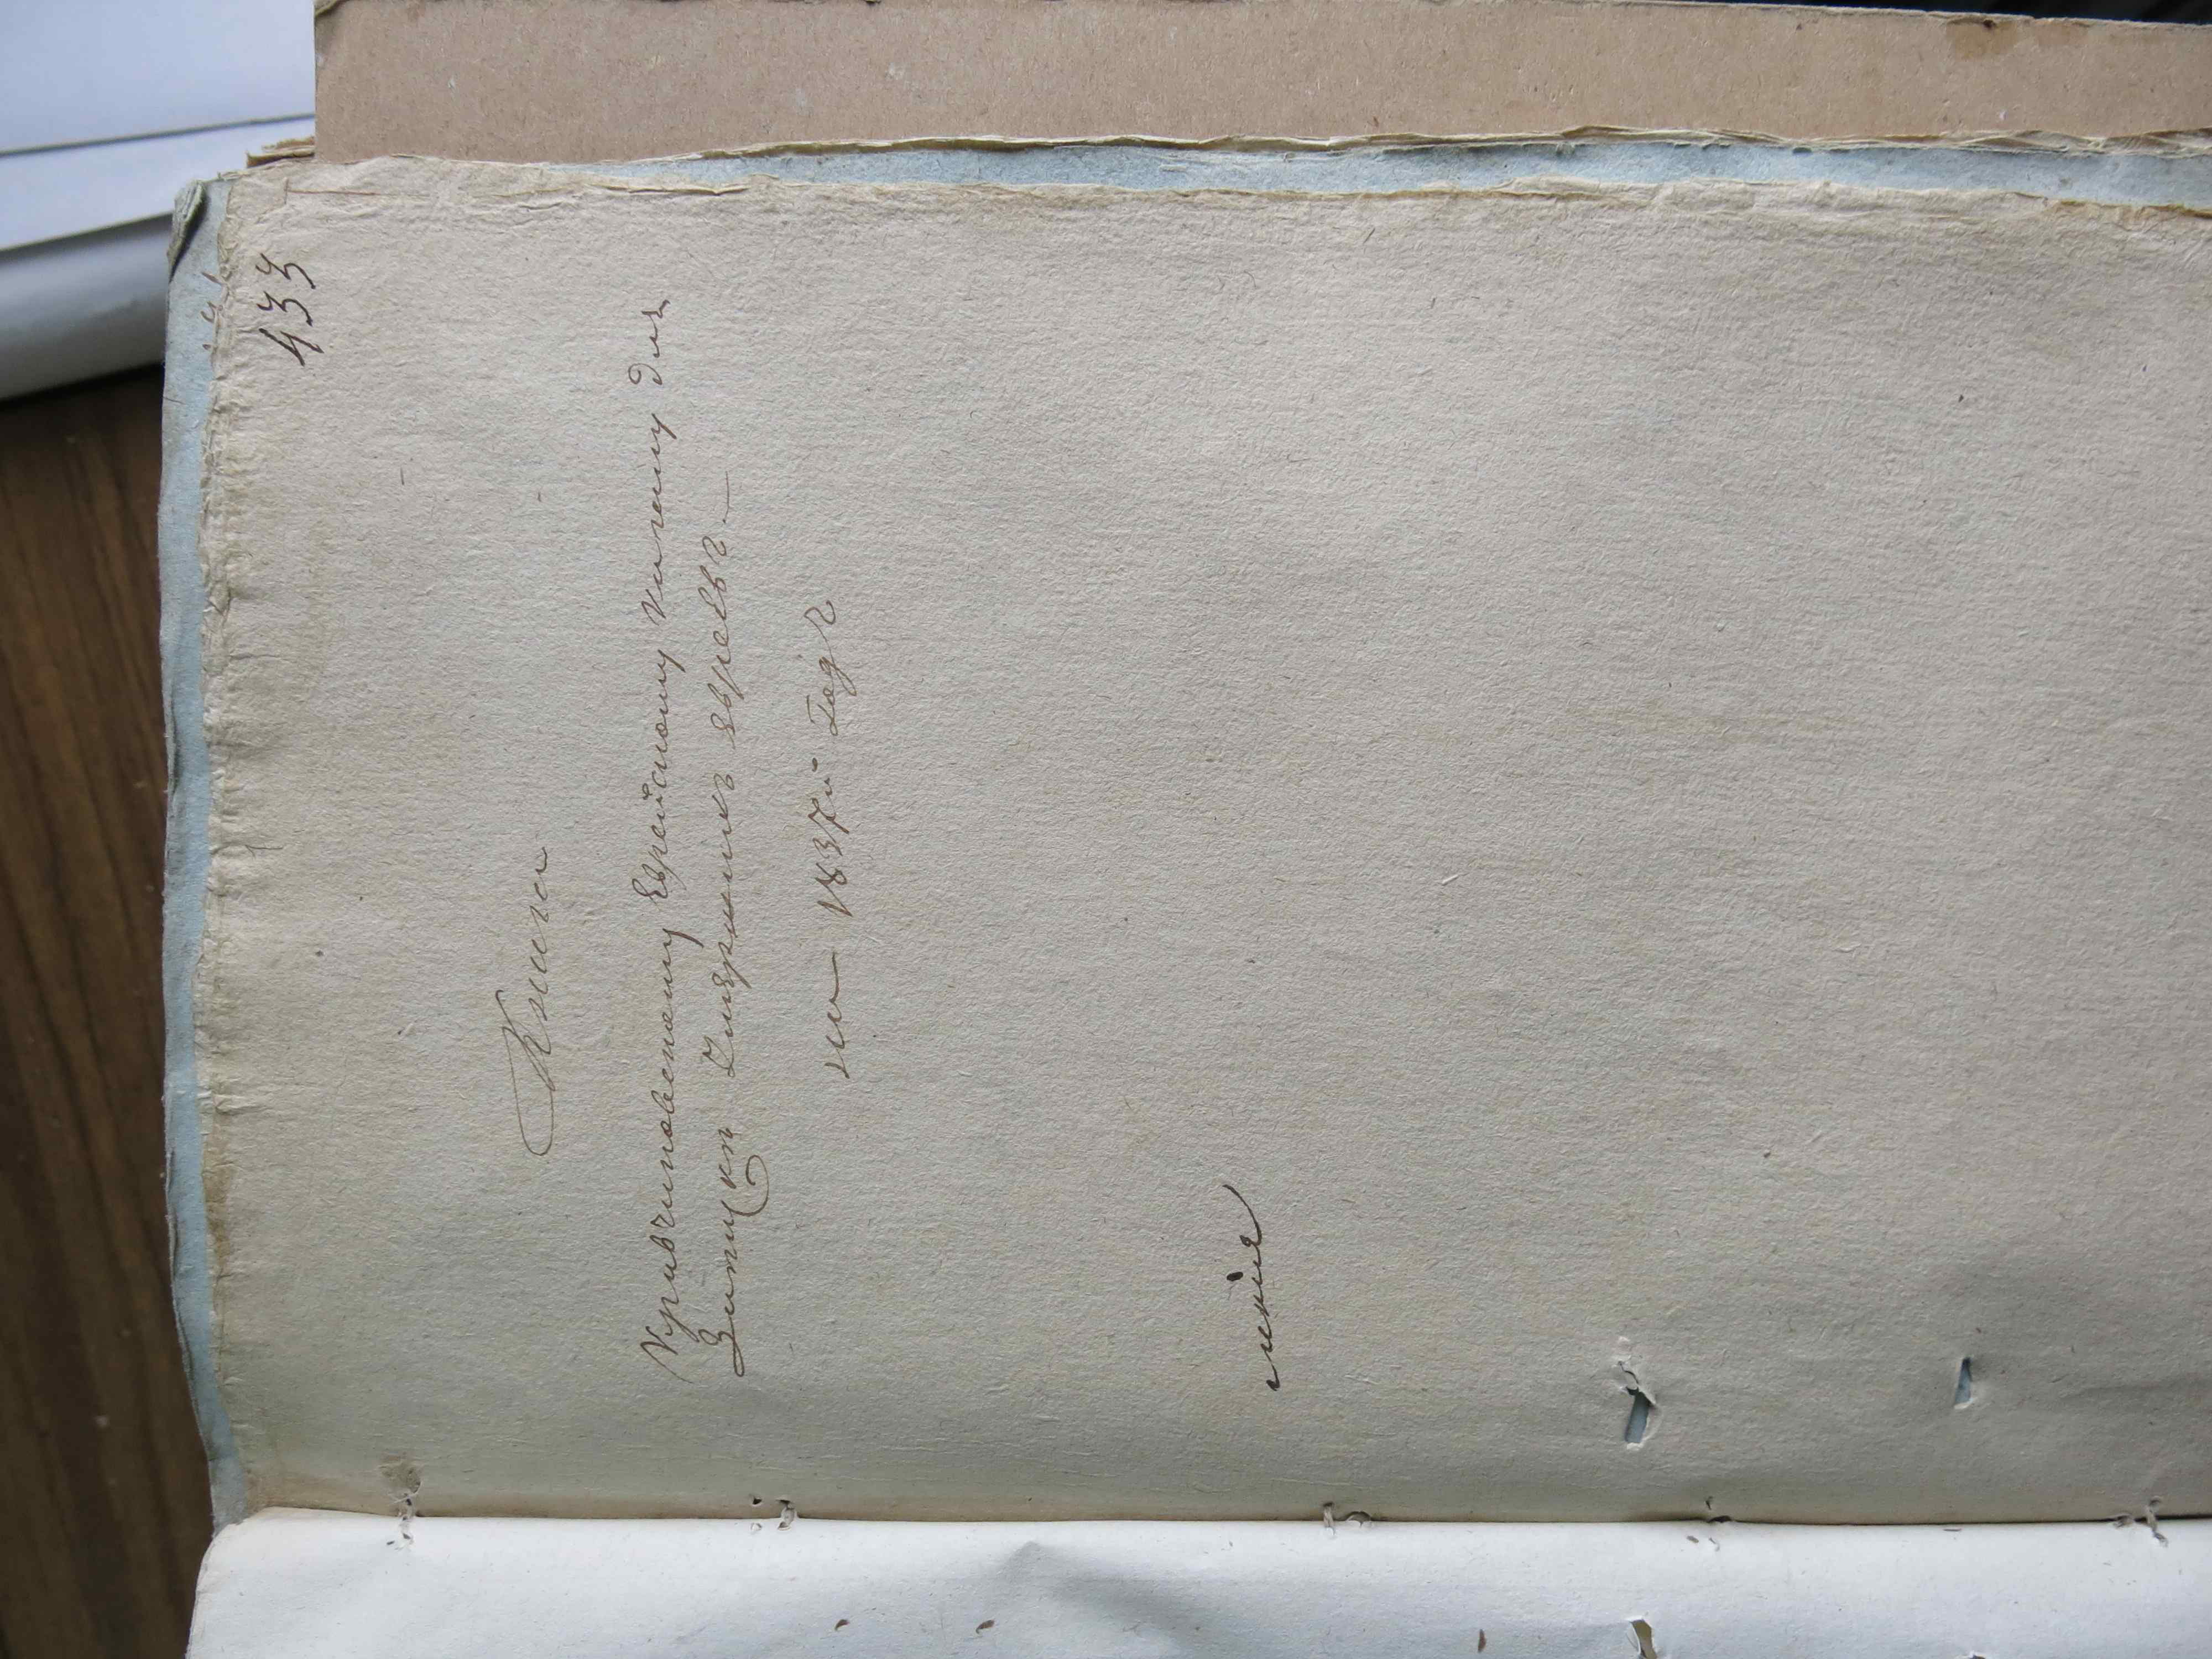 433
Книга
Кривчиновецкому Еврейскому кагалу для
Записки Умершихъ евреевъ.
на 1837й Годъ